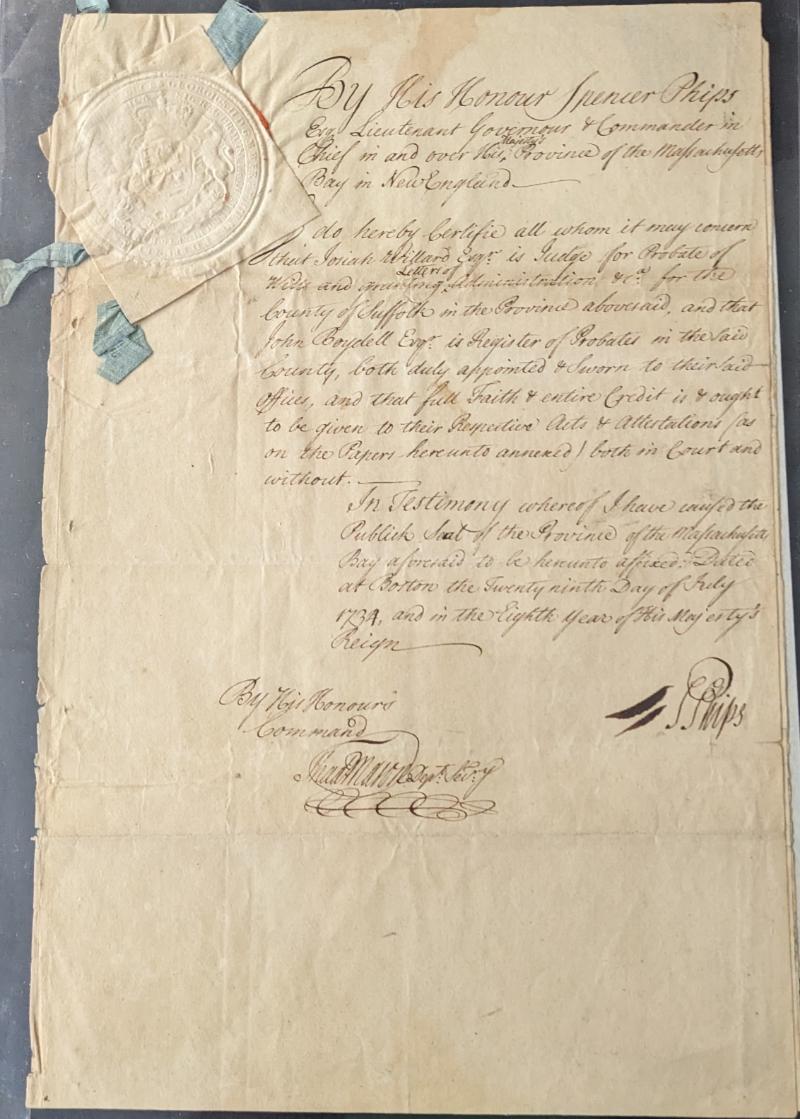 By His Honour Spencer Phips
Esqr. Lieutenant Governour & Commander in
Chief in and over His Majesty's Province of the Massachusetts
Bay in New England.
I do hereby Certifie all whom it may concern
that Josiah Willard Esqr. is Judge for Probate of
Wills and granting Letters of Administration, &ca. for the
County of Suffolk in the Province abovesaid, and that
John Boydell Esqr. is Register of Probates in the said
County, both duly appointed & Sworn to their said
Offices, and that full Faith & entire Credit is & ought
to be given to their Respective Acts & Attestations (as
on the Papers hereunto annexed) both in Court and
without.
In Testimony whereof I have caused the
Publick Seal of the Province of the Massachusetts
Bay aforesaid to be hereunto affixed. Dated
at Boston the Twenty ninth Day of July
1734, and in the Eighth Year of His Majesty's
Reign
S Phips
By His Honour's
Command
Thad Mason Depty. Secry
GEORGIUS II